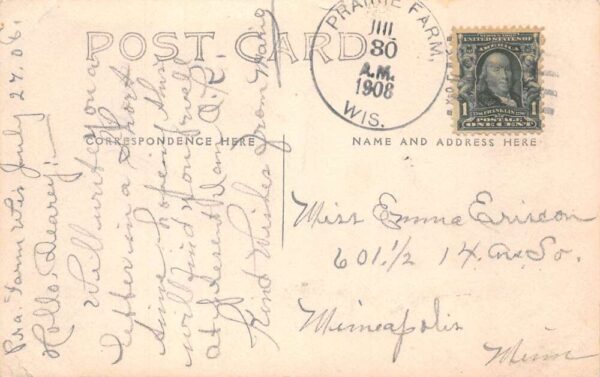 POST CARD
CORRESPONDENCE HERE
NAME AND ADDRESS HERE
PRAIRIE FARM,
JUL
30
A.M.
1908
WIS.
UNITED STATES OF
AMERICA
FRANKLIN
1 1
POSTAGE
ONE CENT
Pra. Farm Wis July 29. 08.
Hello, Dearey!—
Will write you a
letter in a short
time hoping this
will find you well
at present I am O.K.
Kind Wishes from
Miss Emma Ericson
601.½ 14. Ave So.
Minneapolis
Minn